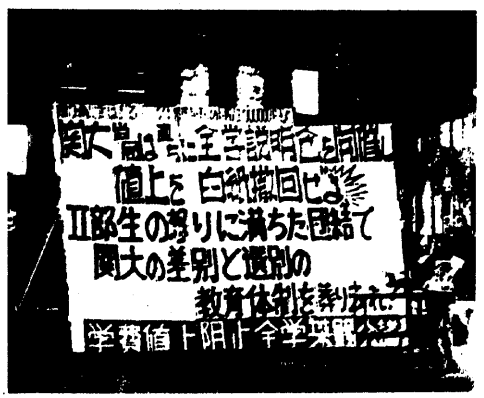 関大当局は直ちに全学説明会を開催し
値上を白紙撤回せよ
II部生の怒りに満ちた団結で
関大の差別と選別の
教育体制を葬りされ!
学費値上阻止全学共闘